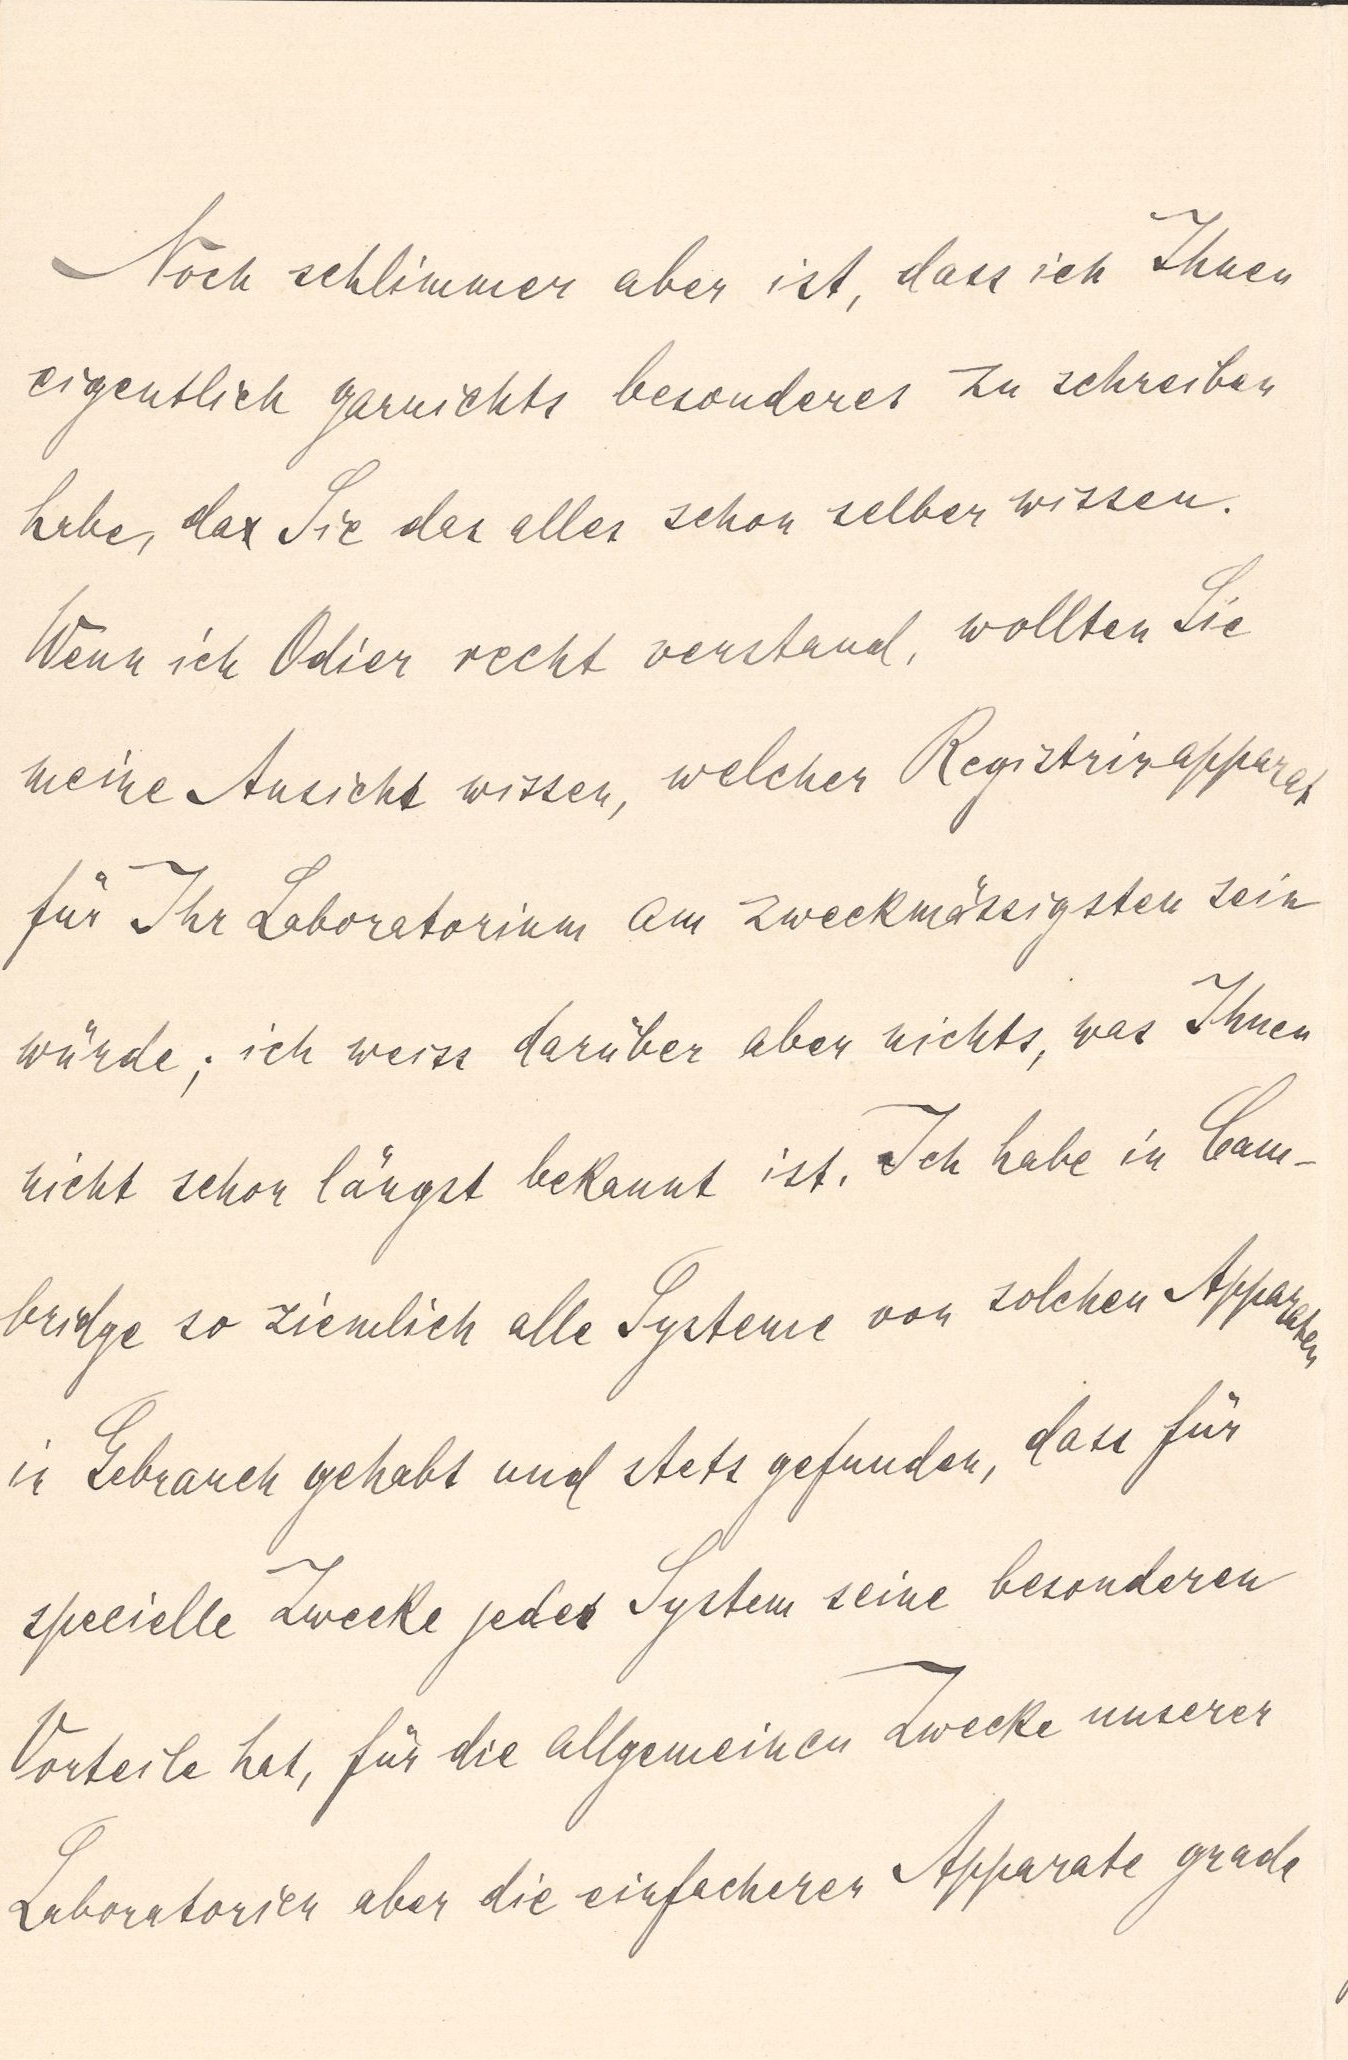 Noch schlimmer aber ist, dass ich Ihnen
eigentlich garnichts besonderes zu schreiben
habe, da Sie das alles schon selber wissen.
Wenn ich Odier recht verstand, wollten Sie
meine Ansicht wissen, welcher Registrirapparat
für Ihr Laboratorium am zweckmässigsten sein
würde; ich weiss darüber aber nichts, was Ihnen
nicht schon längst bekannt ist. Ich habe in Cam-
bridge so ziemlich alle Systeme von solchen Apparaten
in Gebrauch gehabt und stets gefunden, dass für
specielle Zwecke jedes System seine besonderen
Vorteile hat, für die allgemeinen Zwecke unserer
Laboratorien aber die einfacheren Apparate grade